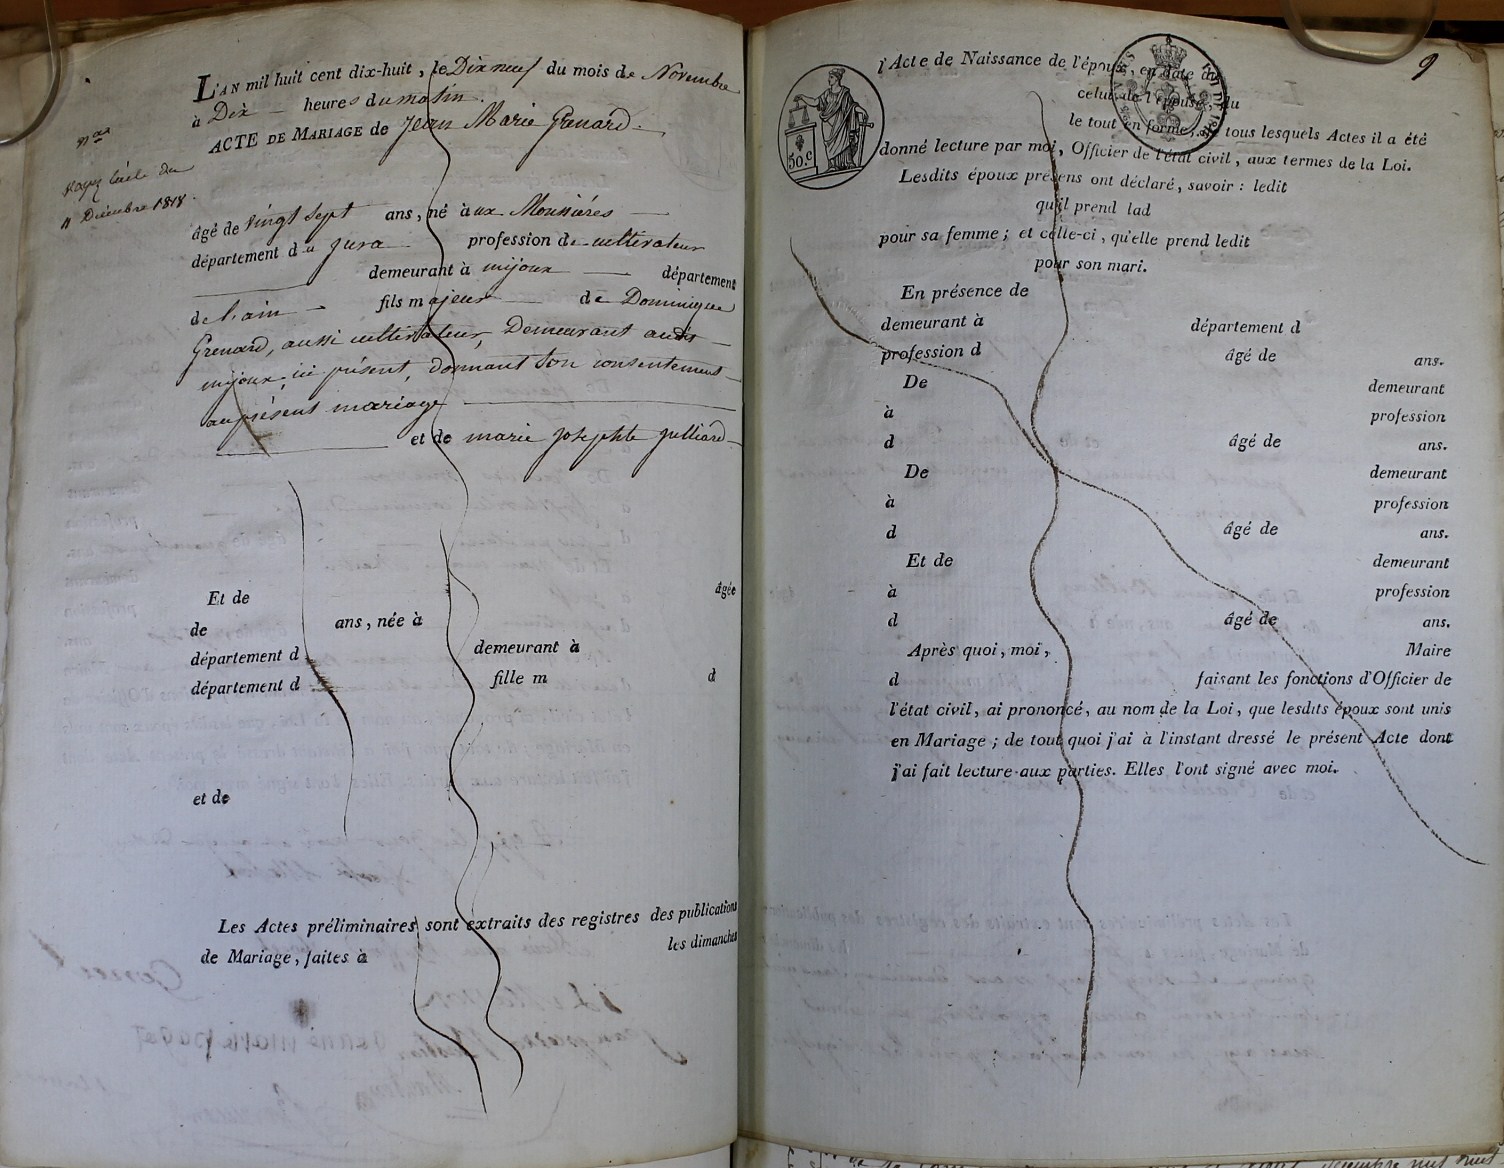 L'AN mil huit cent dix-huit, le Dix neuf du mois de Novembre
à Dix heures du matin.
ACTE DE MARIAGE de Jean Marie Grenard.
Nª
voyez l'acte du
11 Décembre 1818.
âgé de vingt sept ans, né à aux Moussiéres
département du jura profession de cultivateur
demeurant à mijoux département
de l'ain fils majeur de Dominique
Grenard, aussi cultivateur, Demeurant audit
mijoux, ici présent, donnant son consentement
au présent mariage
et de marie josephte julliard
Et de âgée
de ans, née à
département d demeurant à
département d fille m d
et de
Les Actes préliminaires sont extraits des registres des publications
de Mariage, faites à les dimanches
9
50 c
l'Acte de Naissance de l'époux, en date du
celui de l'épouse, du
le tout en forme; de tous lesquels Actes il a été
donné lecture par moi, Officier de l'état civil, aux termes de la Loi.
Lesdits époux présens ont déclaré, savoir : ledit
qu'il prend lad
pour sa femme; et celle-ci, qu'elle prend ledit
pour son mari.
En présence de
demeurant à département d
profession d âgé de ans.
De demeurant
à profession
d âgé de ans.
De demeurant
à profession
d âgé de ans.
Et de demeurant
à profession
d âgé de ans.
Après quoi, moi, Maire
d faisant les fonctions d'Officier de
l'état civil, ai prononcé, au nom de la Loi, que lesdits époux sont unis
en Mariage; de tout quoi j'ai à l'instant dressé le présent Acte dont
j'ai fait lecture aux parties. Elles l'ont signé avec moi.